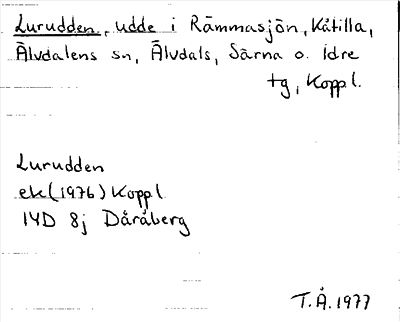 Lurudden, udde i Rämmasjön, Kåtilla,
Älvdalens sn, Älvdals, Särna o. Idre
tg, Koppl.
Lurudden
ek (1976) Koppl
14D 8j Dåråberg
T.Å. 1977